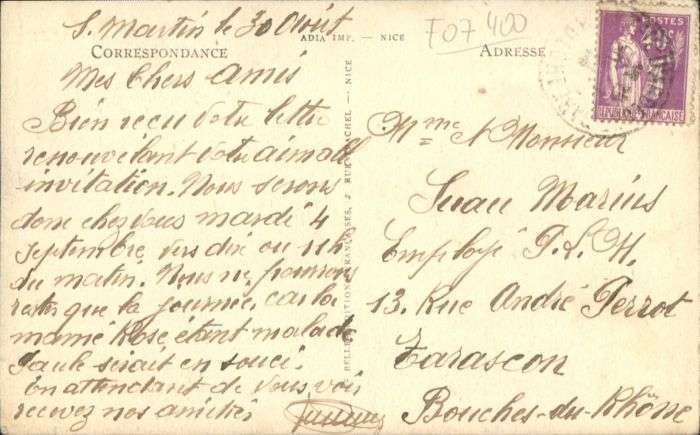 S. Martin le 30 Août
ADIA IMP. — NICE
F07 400
CORRESPONDANCE
ADRESSE
POSTES
FRANÇAISE
Mes Chers Amis
Bien recu votre lettre
renouvelant votre aimable
invitation. Nous serons
donc chez vous mardi 4
Septembre vers dix ou 11h
du matin. Nous ne pourrons
rester que la journée, car la
mamé Rose, etant malade
Paule serait en souci.
En attendant de vous voir
recevez nos amitiés
RUE NICE
Mme & Monsieur
Marius
Employé P.L.M.
13. Rue André Perrot
Tarascon
Bouches-du-Rhône